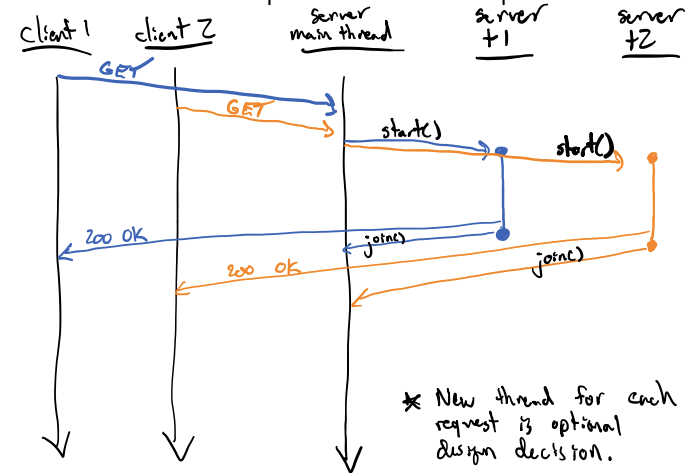 client 1
client 2
server
main thread
server
t1
server
t2
GET
GET
start()
start()
200 OK
join()
200 OK
join()
* New thread for each
request is optional
design decision.